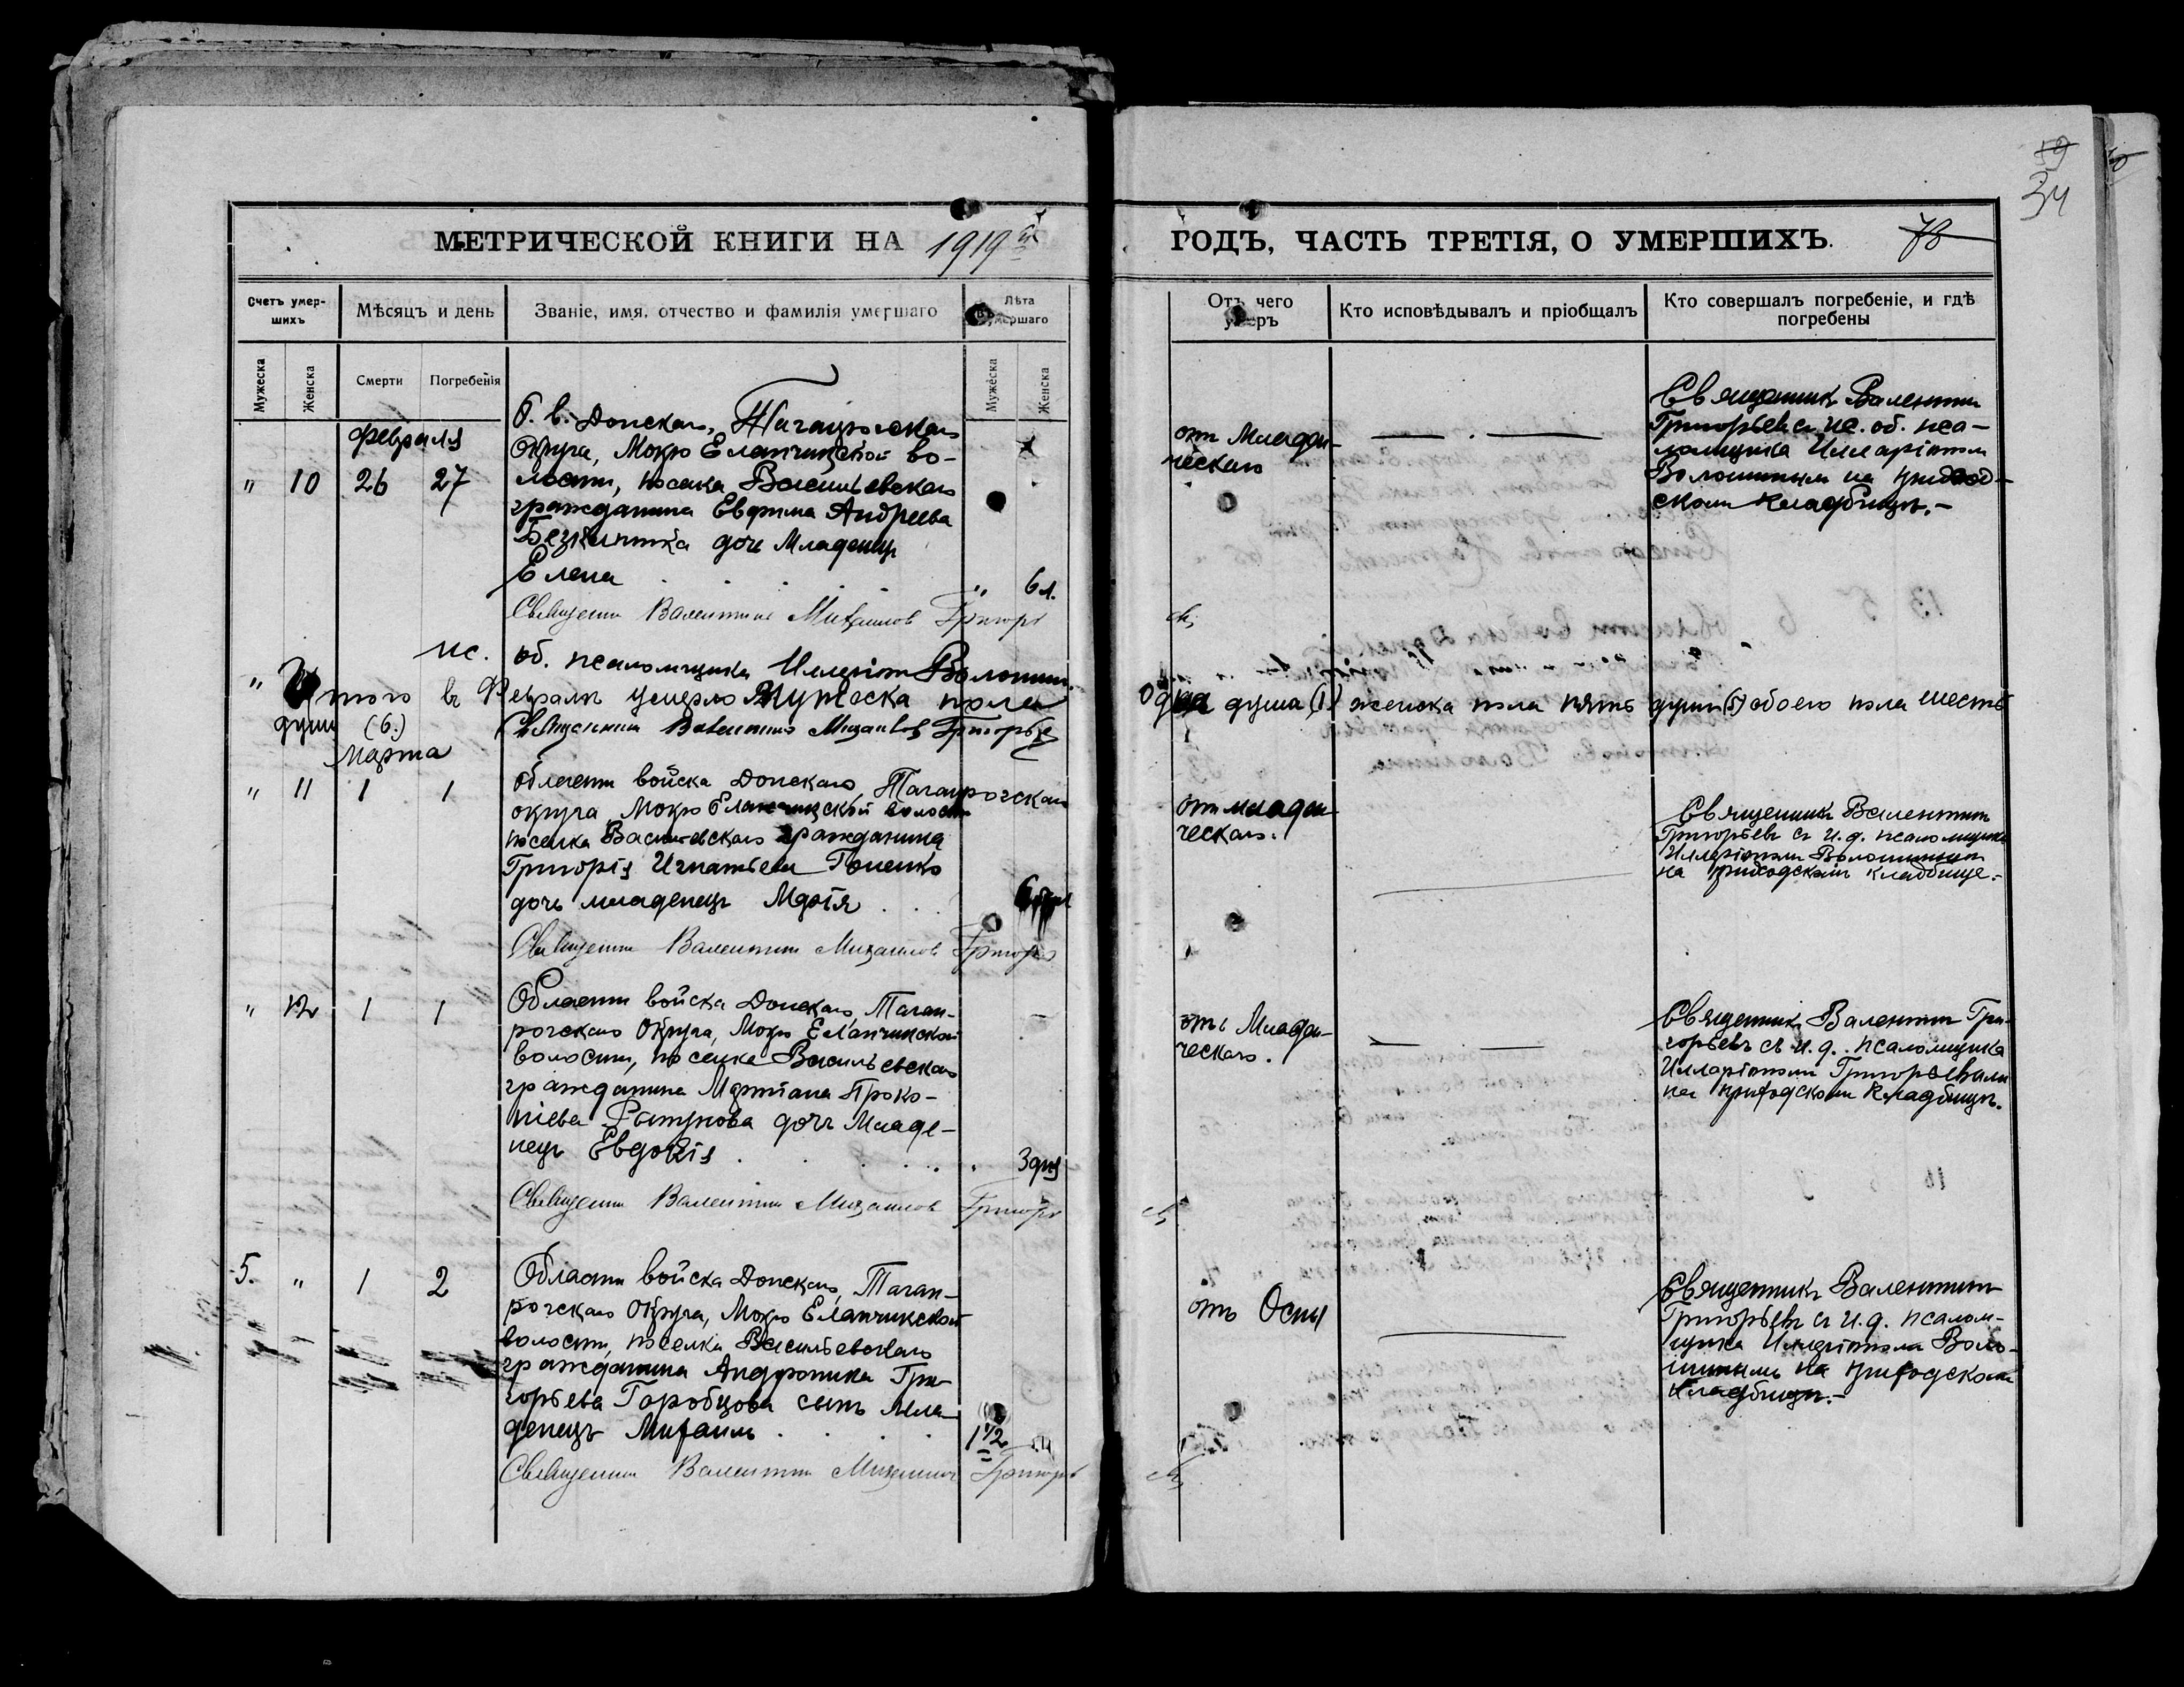 59
34
МЕТРИЧЕСКОЙ КНИГИ НА 1919й ГОДЪ, ЧАСТЬ ТРЕТІЯ, О УМЕРШИХЪ. 78
Счетъ умершихъ
Мѣсяцъ и день
Званіе, имя, отчество и фамилія умершаго
Лѣта умершаго
Отъ чего умеръ
Кто исповѣдывалъ и пріобщалъ
Кто совершалъ погребеніе, и гдѣ погребены
Мужеска
Женска
Смерти
Погребенія
Мужеска
Женска
февраля
" 10 26 27
О. в. Донскаго, Таганрогскаго
Округа, Мокро Еланчицской во-
лости, поселка Васильевскаго
гражданина Евфима Андреева
дочь Младенецъ
Елена " 6 л.
отъ Младен-
ческаго
Священникъ Валентинъ
Григорьевъ съ ис. об. пса-
ломщика Илларіономъ
Волошинымъ на приход-
скомъ кладбищѣ.-
Священникъ Валентинъ Михаиловъ Григорьевъ
ис. об. псаломщика Илларіонъ Волошинъ
Итого въ Февралѣ умерло Мужеска пола Одна душа (1) женска пола пять душъ (5) обоего пола шесть
душъ (6.)
Священникъ Валентинъ Михаиловъ Григорьевъ
Марта
" 11 1 1
Области войска Донскаго, Таганрогскаго
округа, Мокро Еланчицской волости
поселка Васильевскаго гражданина
Григорія Игнатьева Гоненко
дочь младенецъ Марія
отъ младен-
ческаго.
Священникъ Валентинъ
Григорьевъ съ и. д. псаломщика
Илларіономъ Волошинымъ
на приходскомъ кладбище.-
Священникъ Валентинъ Михаиловъ Григорьевъ
" 12 1 1
Области войска Донскаго, Таган-
рогскаго Округа, Мокро Еланчикской
волости, поселка Васильевскаго
гражданина Мартіана Проко-
піева дочь Младе-
нецъ Евдокія 3 дня
отъ Младен-
ческаго.
Священникъ Валентинъ Гри-
горьевъ съ и. д. псаломщика
Илларіономъ Григорьевымъ
на приходскомъ кладбищѣ.
Священникъ Валентинъ Михаиловъ Григорьевъ
5. " 1 2
Области войска Донскаго, Таган-
рогскаго Округа, Мокро Еланчикской
волости, поселка Васильевскаго
гражданина Андроника Гри-
горьева Горобцова сынъ Мла-
денецъ Михаилъ 1 1/2
отъ Оспы
Священникъ Валентинъ
Григорьевъ съ и. д. псалом-
щика Илларіономъ Воло-
шинымъ на приходскомъ
кладбищѣ.-
Священникъ Валентинъ Михаиловъ Григорьевъ